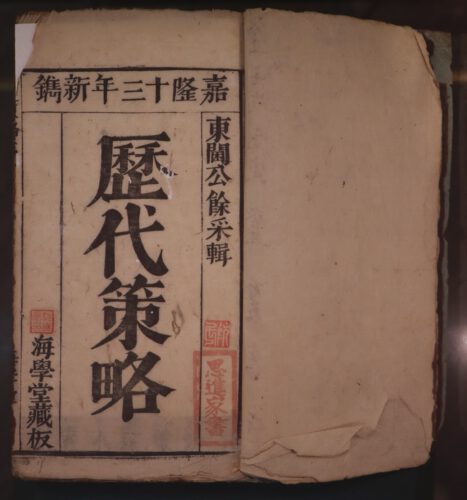 嘉隆十三年新鐫
東閣公餘采輯
歷代策略
海學堂藏板